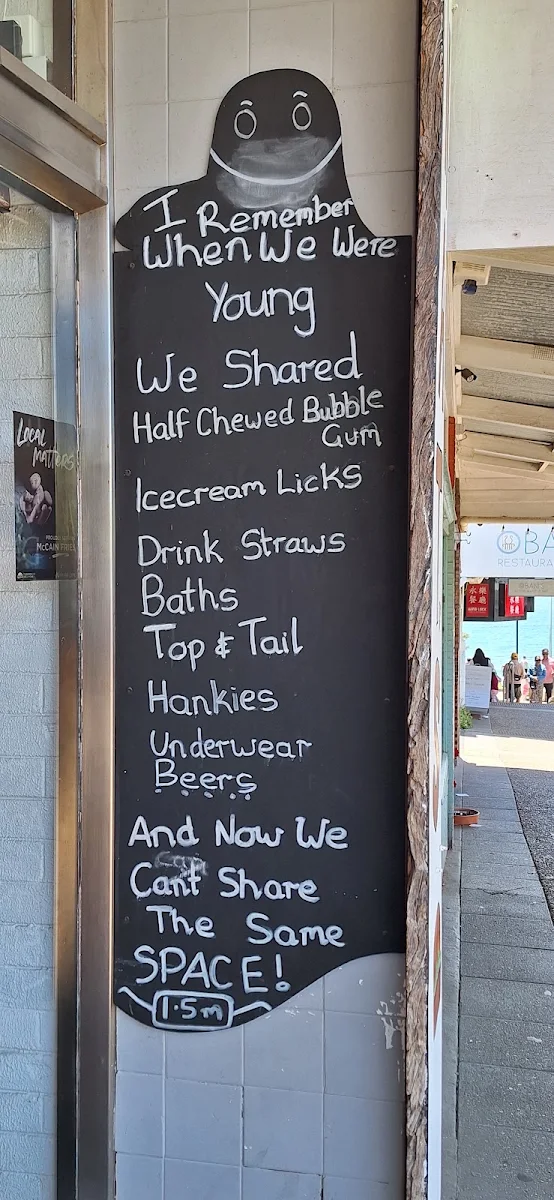 I Remember
When We Were
Young
We Shared
Half Chewed Bubble
Gum
Icecream Licks
Drink Straws
Baths
Top & Tail
Hankies
Underwear
Beers
And Now We
Cant Share
The Same
SPACE!
1.5m
Local
Matters
McCAIN
RESTAURA
水樂
餐廳